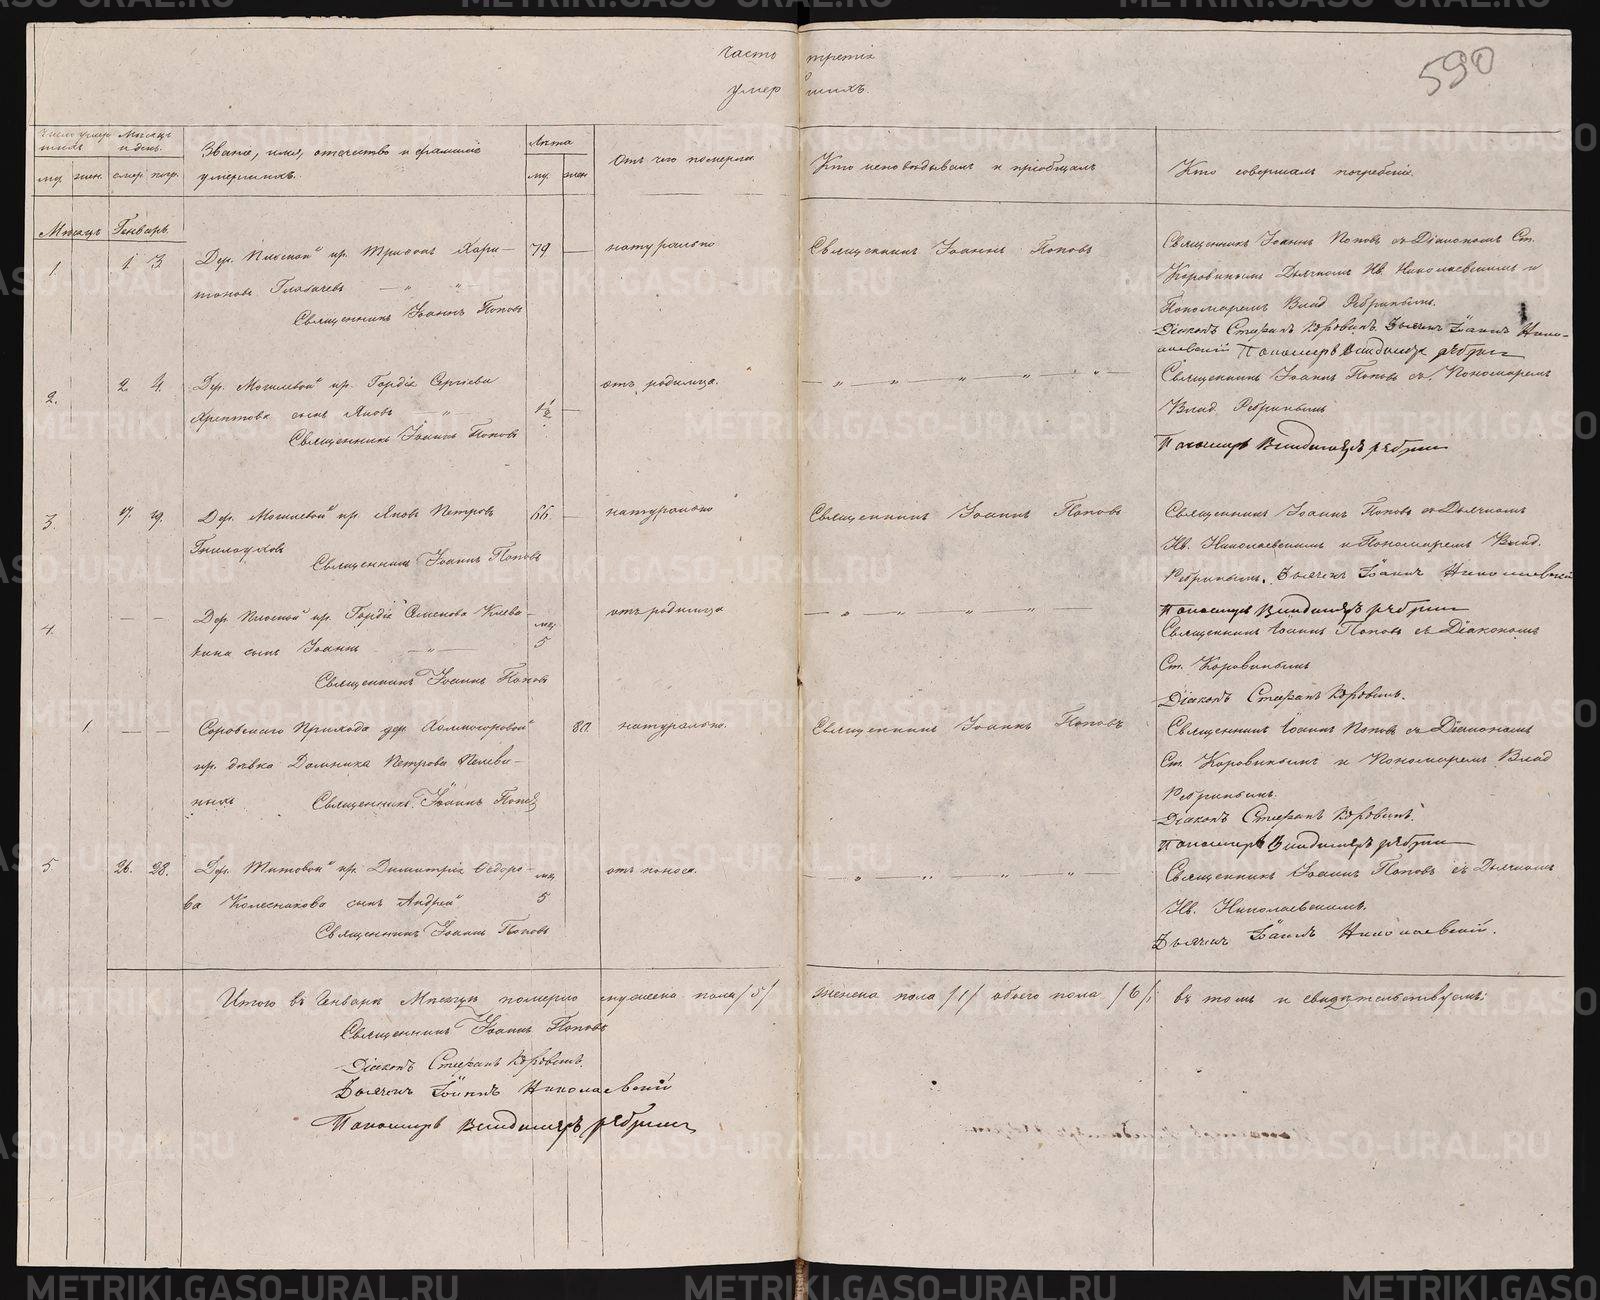 Часть третія
умершихъ.
590
Число умершихъ
Мѣсяцъ и день.
Званіе, имя, отчество и фамилія умершихъ.
Лѣта
Отъ чего померли
Кто исповѣдывалъ и пріобщалъ
Кто совершалъ погребеніе.
му. жен. смер. погр.
му. жен.
Мѣсяцъ Генварь
1 1 3. Дер. кр. Трифонъ Хари-
тоновъ
79 —
натурально
Священникъ Іоаннъ Поповъ
Священникъ Іоаннъ Поповъ
Священникъ Іоаннъ Поповъ съ Діакономъ Ст.
Коровинымъ Дьячкомъ Ив. Николаевскимъ и
Пономаремъ Влад. Ребринымъ.
Діаконъ Стефанъ Коровинъ. Дьячекъ Іоаннъ Нико-
лаевскій Пономарь Владимеръ ребрин
2. 2. 4. Дер. Могилевой кр. Гордія Сергіева
сынъ Яковъ — „
1½ —
отъ родимца.
Священникъ Іоаннъ Поповъ
— „ „ „ „ „ —
Священникъ Іоаннъ Поповъ съ Пономаремъ
Влад. Ребринымъ
Пономарь Владимеръ ребрин
3. 17. 19. Дер. Могилевой кр. Яковъ Петровъ
Гнилоуховъ
66. —
натурально
Священникъ Іоаннъ Поповъ
Священникъ Іоаннъ Поповъ
Священникъ Іоаннъ Поповъ съ Дьячкомъ
Ив. Николаевскимъ и Пономаремъ Влад.
Ребринымъ. Дьячекъ Іоаннъ Николаевскій
Пономарь Владимеръ ребрин
4. — — Дер. кр. Гордія Семенова Клева-
кина сынъ Іоаннъ — „ —
мц.
5
отъ родимца
Священникъ Іоаннъ Поповъ
— „ „ „ „ —
Священникъ Іоаннъ Поповъ съ Діакономъ
Ст. Коровинымъ
Діаконъ Стефанъ Коровинъ.
1. — — прихода дер. Холмогоровой
кр. дѣвка Домника Петрова
80.
натурально.
Священникъ Іоаннъ Поповъ
Священникъ Іоаннъ Поповъ
Священникъ Іоаннъ Поповъ съ Діакономъ
Ст. Коровинымъ и Пономаремъ Влад
Ребринымъ.
Діаконъ Стефанъ Коровинъ.
Пономарь Владимеръ ребрин
5. 26. 28. Дер. Титовой кр. Димитрія Ѳедоро-
ва Колесникова сынъ Андрей
мц
5
отъ поноса.
Священникъ Іоаннъ Поповъ
— „ „ „ „ —
Священникъ Іоаннъ Поповъ съ Дьячкомъ
Ив. Николаевскимъ.
Дьячекъ Іоаннъ Николаевскій.
Итого въ Генварѣ Мѣсяцѣ померло мужеска пола /5/ женска пола /1/ обоего пола /6/; въ томъ и свидѣтельствуемъ:
Священникъ Іоаннъ Поповъ
Діаконъ Стефанъ Коровинъ.
Дьячекъ Іоаннъ Николаевскій
Пономарь Владимеръ ребрин
METRIKI.GASO-URAL.RU